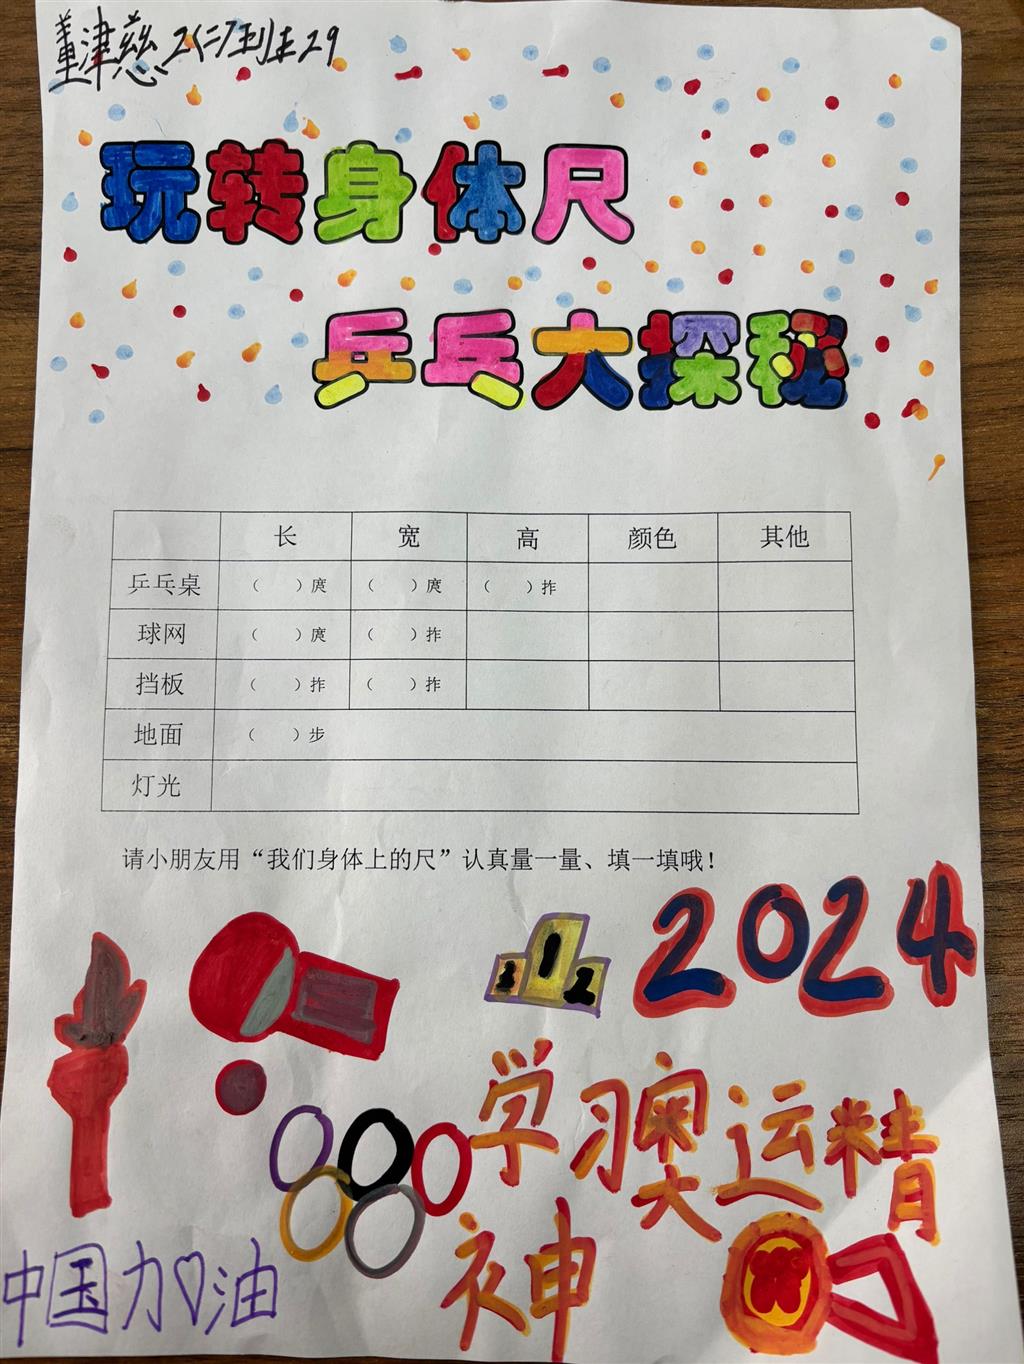 董津慈 2(二)班 29
玩转身体尺
乒乓大探秘
长 宽 高 颜色 其他
乒乓桌 （ ）庹 （ ）庹 （ ）拃
球网 （ ）庹 （ ）拃
挡板 （ ）拃 （ ）拃
地面 （ ）步
灯光
请小朋友用“我们身体上的尺”认真量一量、填一填哦！
2024
1
2
学习奥运精
神
中国加油